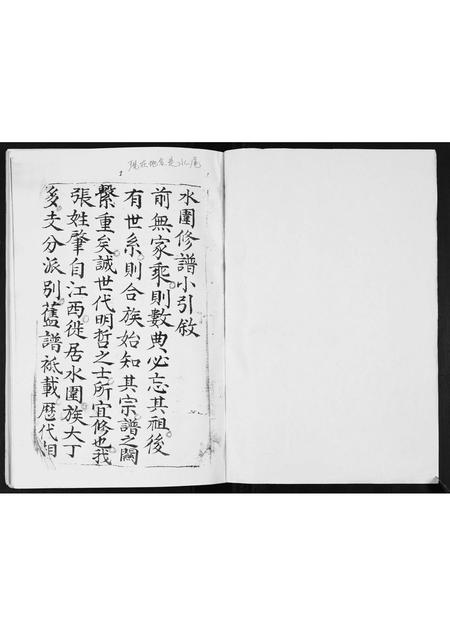 現在地名是水尾
水圍修譜小引敘
前無家乘則數典必忘其祖後
有世系則合族始知其宗譜之關
繫重矣誠世代明哲之士所宜修也我
張姓肇自江西徙居水圍族大丁
多支分派別舊譜祗載歷代相